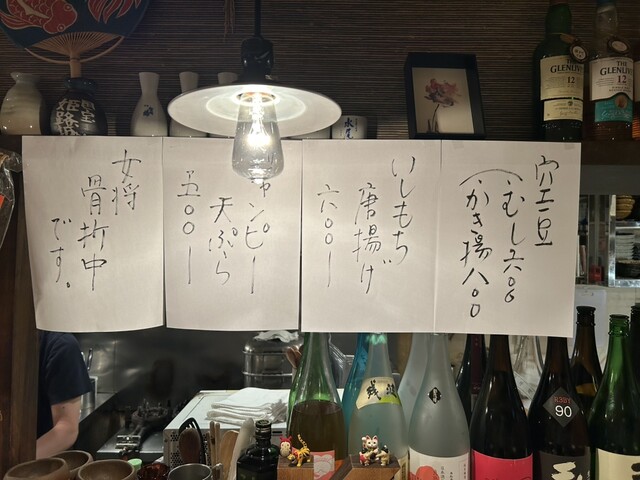 空豆
(むし六〇〇
かき揚八〇〇
いしもち
唐揚げ
六〇〇ー
ンピー
天ぷら
五〇〇ー
女将
骨折中
です。
GLENLIV
12
THE
GLENLIV
12
姫路
残波
90